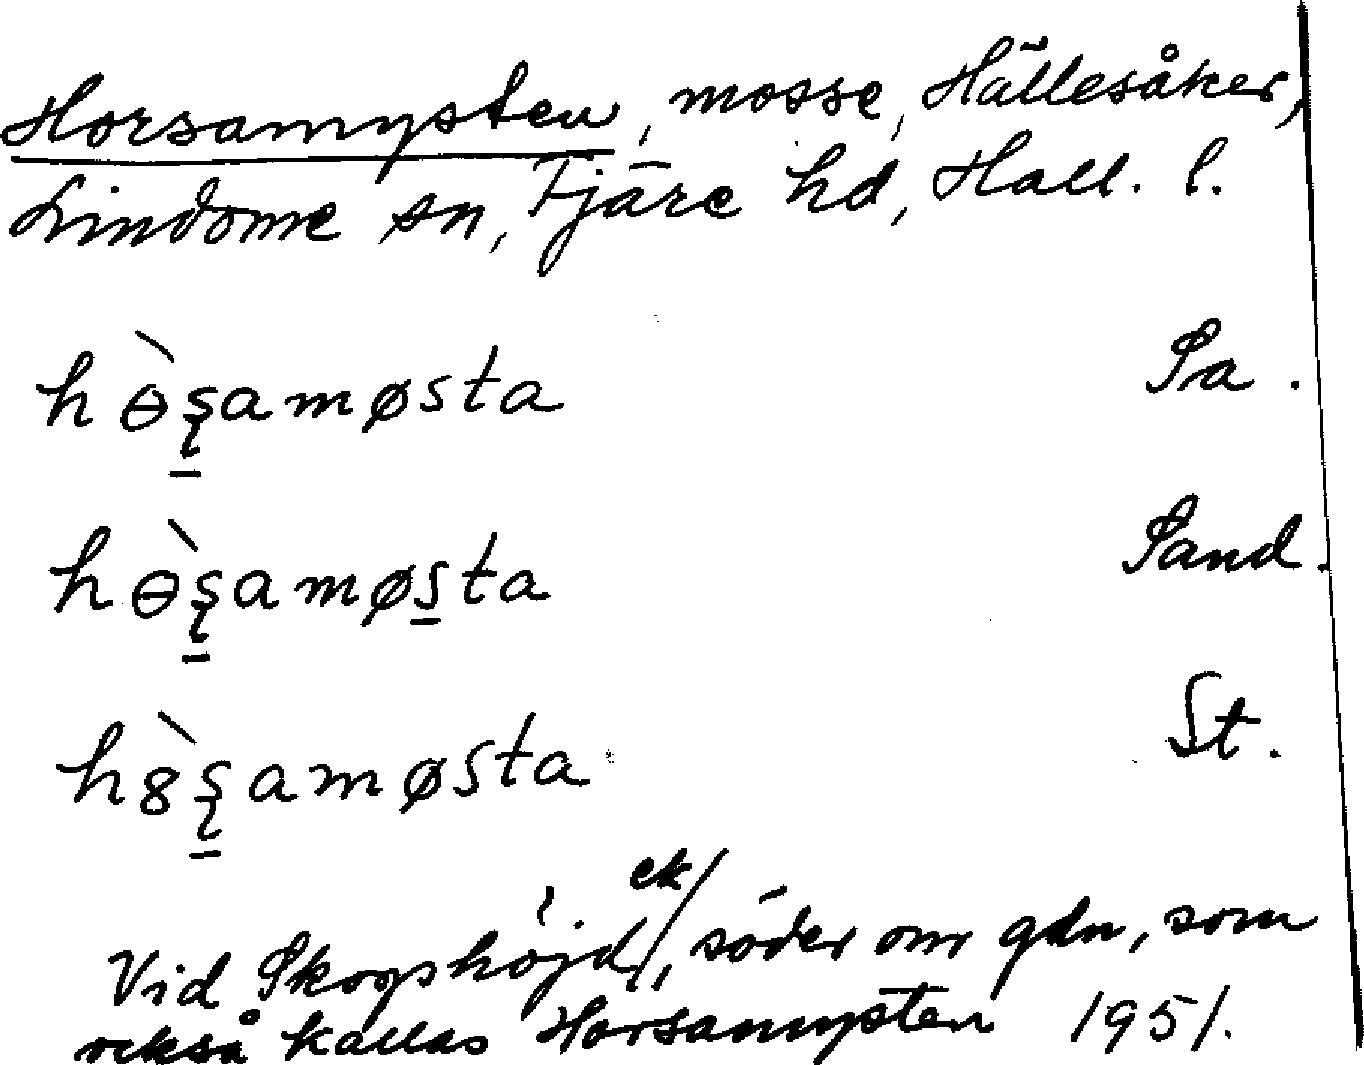 Horsamysten, mosse, Hällesåker,
Lindome sn, Fjäre hd, Hall. l.
hɵ̀ʂamøsta Sa.
hɵ̀ʂamøsta Sand.
h8̀ʂamøsta St.
ek/
Vid Skogshöjd/, söder om gdn, som
också kallas Horsamysten 1951.